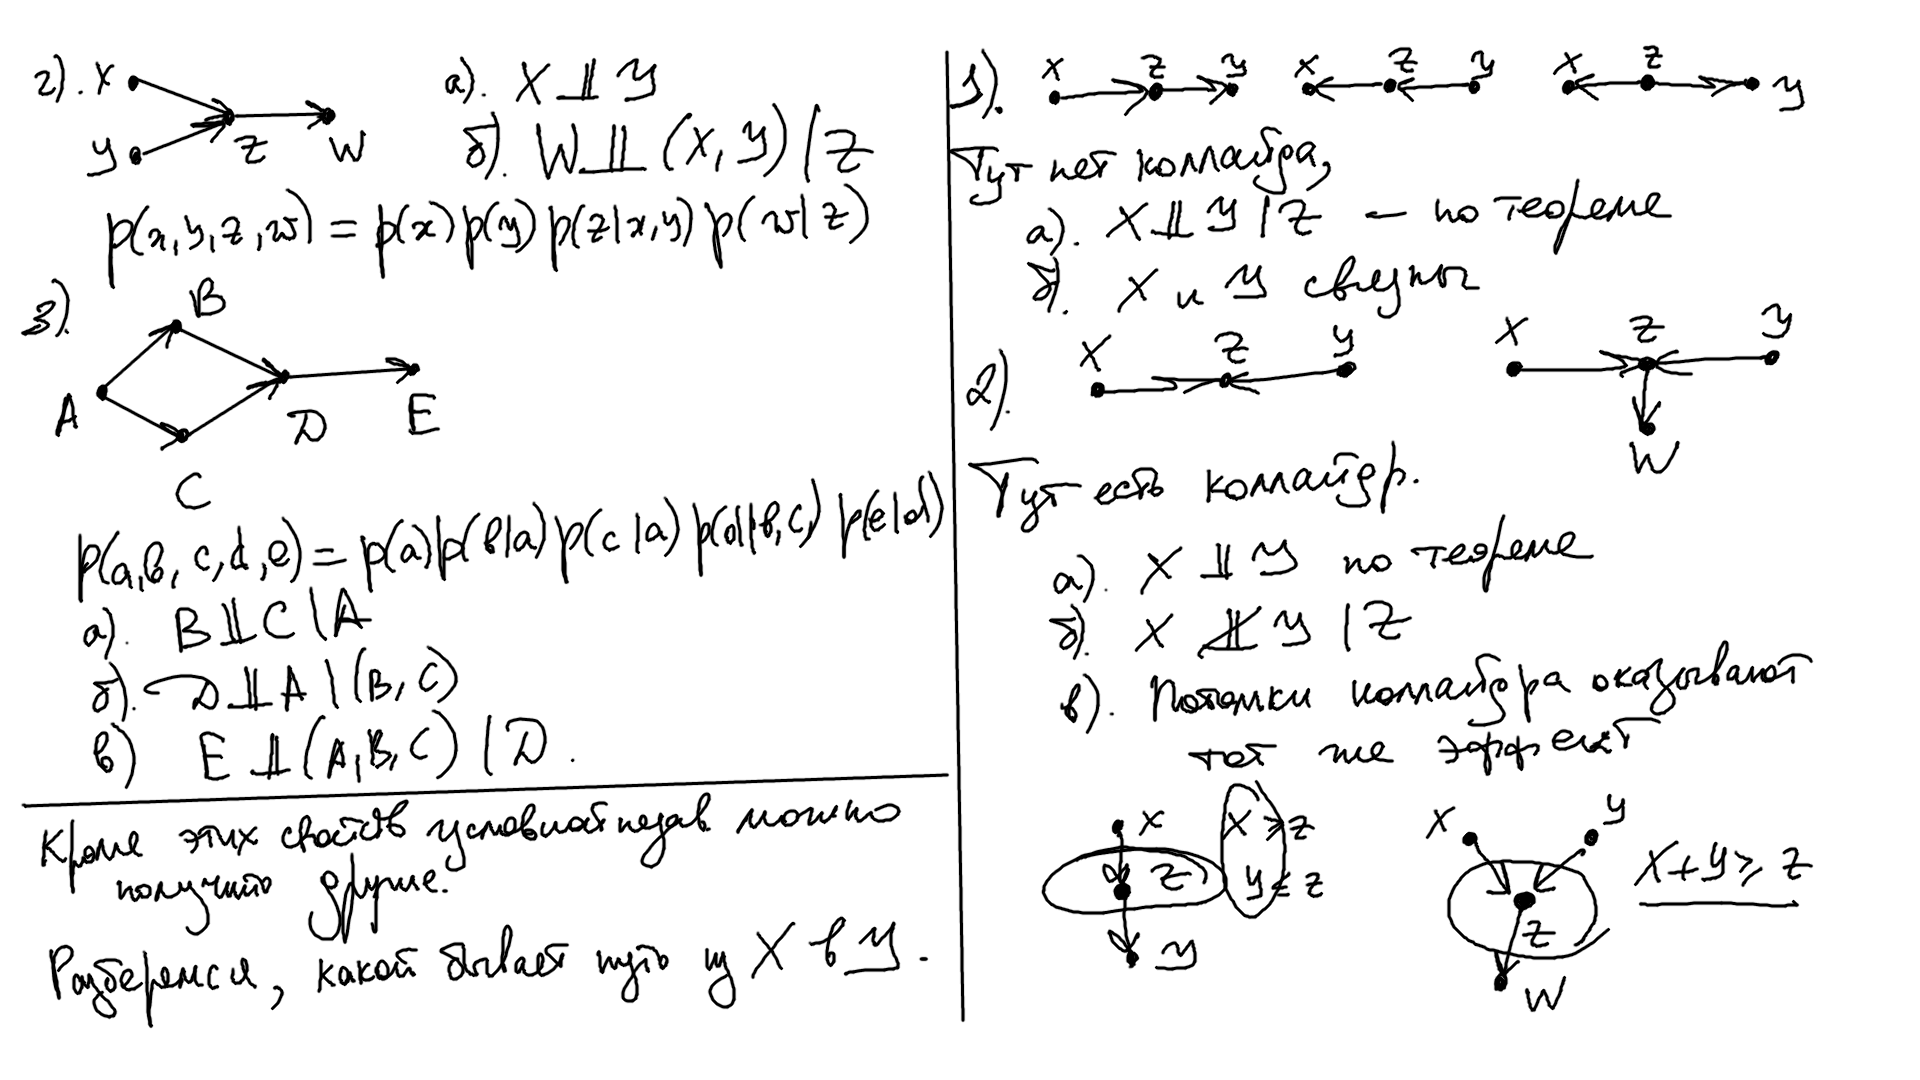 2). X Y Z W
а). X ⫫ Y
б). W ⫫ (X, Y) | Z
p(x, y, z, w) = p(x) p(y) p(z|x, y) p(w|z)
3). A B C D E
p(a, b, c, d, e) = p(a) p(b|a) p(c|a) p(d|b, c) p(e|d)
а). B ⫫ C | A
б). D ⫫ A | (B, C)
в) E ⫫ (A, B, C) | D.
Кроме этих свойств условной незав. можно
получить другие.
Разберемся, какой бывает путь из X в Y.
1). X Z Y X Z Y X Z Y
Тут нет коллайдра,
а). X ⫫ Y | Z – по теореме
б). X и Y связны
2). X Z Y X Z Y W
Тут есть коллайдр.
а). X ⫫ Y по теореме
б). X ⫫̸ Y | Z
в). Потомки коллайдра оказывают
тот же эффект
X Z Y
X ≥ Z
Y ≤ Z
X Y Z W
X + Y ≥ Z